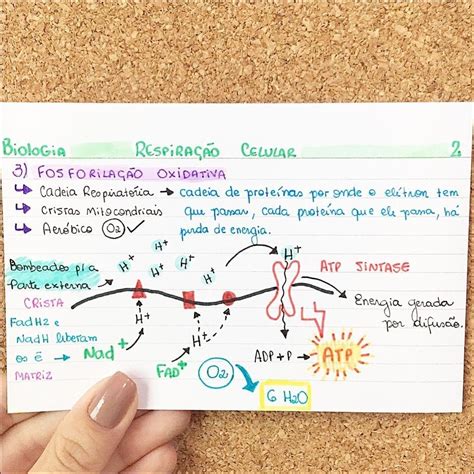 Biologia Respiração Celular 2
3) Fosforilação Oxidativa
↳ Cadeia Respiratória → cadeia de proteínas por onde o elétron tem
↳ Cristas Mitocondriais que passar, cada proteína que ele passa, há
↳ Aeróbico O2 ✓ perda de energia.
H+ H+ H+ H+ H+ H+
Bombeados p/ a
Parte externa
ATP Sintase
Crista
Energia gerada
por difusão.
H+ H+ H+
FadH2 e
NadH liberam
os é → Nad+
FAD+
ADP+P → ATP
Matriz
O2
6 H2O